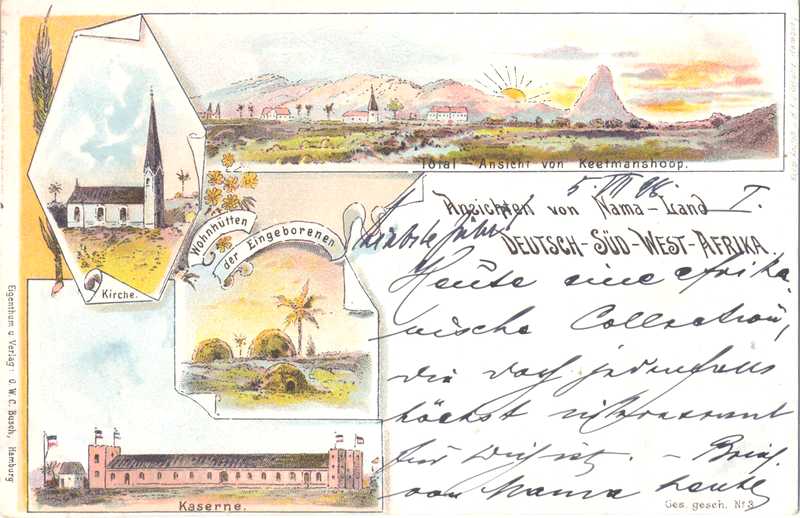 Total - Ansicht von Keetmanshoop.
Kirche.
Wohnhütten
der Eingeborenen
Kaserne.
Ansichten von Nama-Land
DEUTSCH-SÜD-WEST-AFRIKA.
I.
Heute eine afrika-
nische Collection,
die doch jedenfalls
höchst interessant
für Dich ist. - Brief
von Mama heute
Ges. gesch. No 3.
Eigenthum u Verlag: C. W. C. Busch, Hamburg